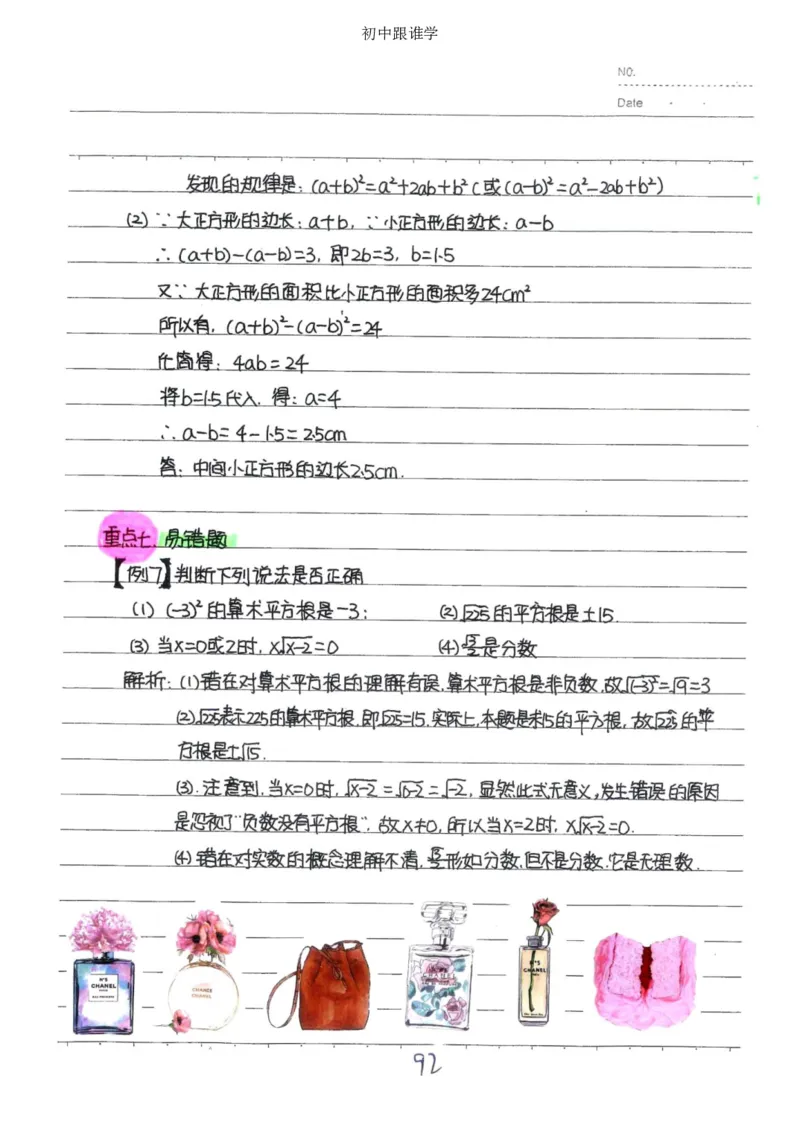 初中跟谁学
NO.
Date
发现的规律是：(a+b)²=a²+2ab+b²(或(a-b)²=a²-2ab+b²)
(2)∵大正方形的边长：a+b，∵小正方形的边长：a-b
∴(a+b)-(a-b)=3，即2b=3，b=1.5
又∵大正方形的面积比小正方形的面积多24cm²
所以有，(a+b)²-(a-b)²=24
化简得：4ab=24
将b=1.5代入，得：a=4
∴a-b=4-1.5=2.5cm
答：中间小正方形的边长2.5cm.
重点七、易错题
【例7】判断下列说法是否正确
(1)(-3)²的算术平方根是-3； (2)√225的平方根是±15.
(3)当x=0或2时，x√x-2=0 (4)√3/2是分数
解析：(1)错在对算术平方根的理解有误，算术平方根是非负数，故√(-3)²=√9=3
(2)√225表示225的算术平方根，即√225=15.实际上，本题是求15的平方根，故√225的平
方根是±√15.
(3).注意到，当x=0时，√x-2=√0-2=√-2，显然此式无意义，发生错误的原因
是忽视了"负数没有平方根"，故x≠0，所以当x=2时，x√x-2=0.
(4)错在对实数的概念理解不清，√3/2形如分数，但不是分数，它是无理数.
N°5
CHANEL
CHANCE
CHANEL
N°5
CHANEL
92